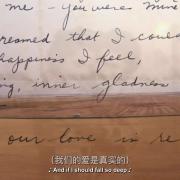 me - you were mine
reamed that I could
happiness I feel,
g, inner gladness
our love is re
(我们的爱是真实的)
♪ And if I should fall so deep ♪